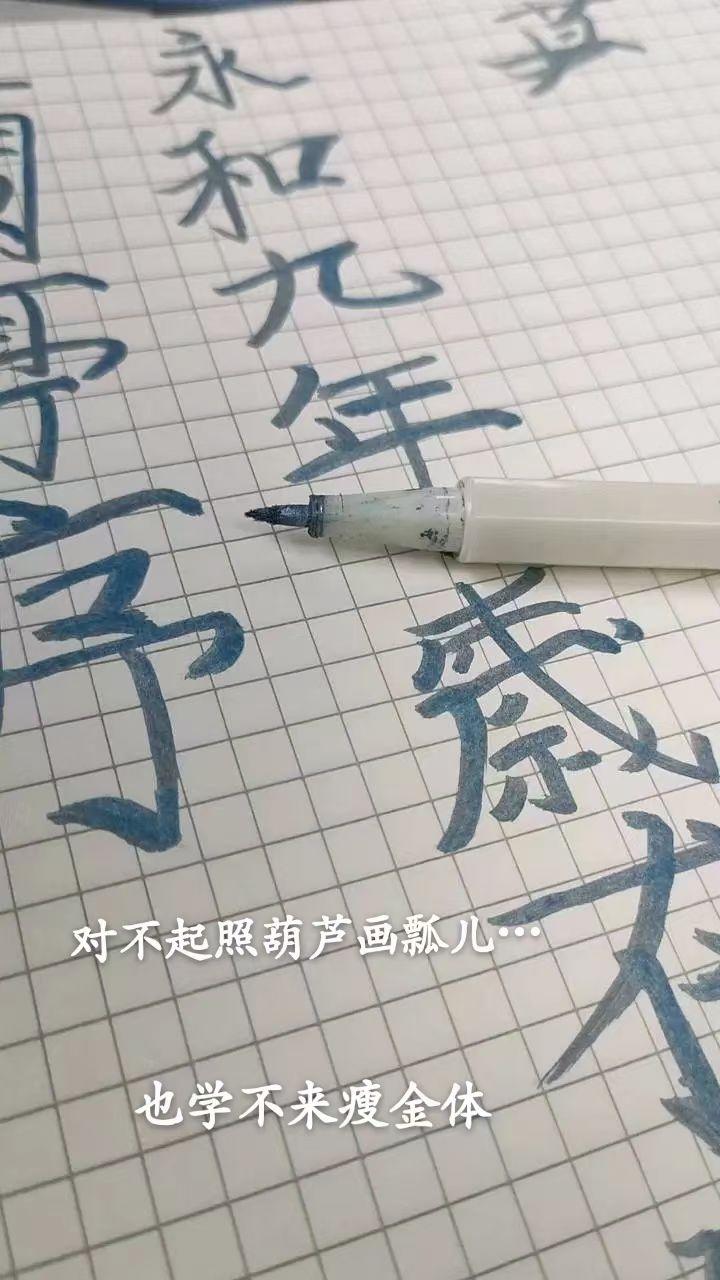 蘭亭序
永和九年
歲在
對不起照葫芦画瓢儿…
也学不来瘦金体